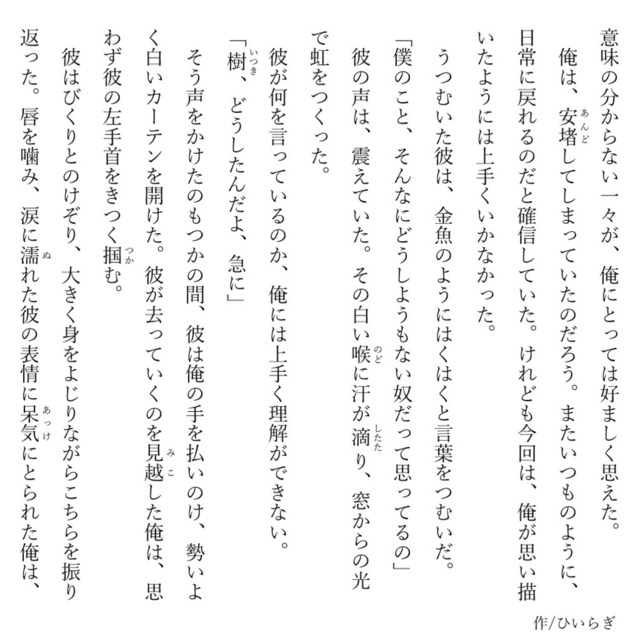 意味の分からない一々が、俺にとっては好ましく思えた。
　俺は、安堵してしまっていたのだろう。またいつものように、
日常に戻れるのだと確信していた。けれども今回は、俺が思い描
いたようには上手くいかなかった。
　うつむいた彼は、金魚のようにはくはくと言葉をつむいだ。
「僕のこと、そんなにどうしようもない奴だって思ってるの」
　彼の声は、震えていた。その白い喉に汗が滴り、窓からの光
で虹をつくった。
　彼が何を言っているのか、俺には上手く理解ができない。
「樹、どうしたんだよ、急に」
　そう声をかけたのもつかの間、彼は俺の手を払いのけ、勢いよ
く白いカーテンを開けた。彼が去っていくのを見越した俺は、思
わず彼の左手首をきつく掴む。
　彼はびくりとのけぞり、大きく身をよじりながらこちらを振り
返った。唇を噛み、涙に濡れた彼の表情に呆気にとられた俺は、
作/ひいらぎ